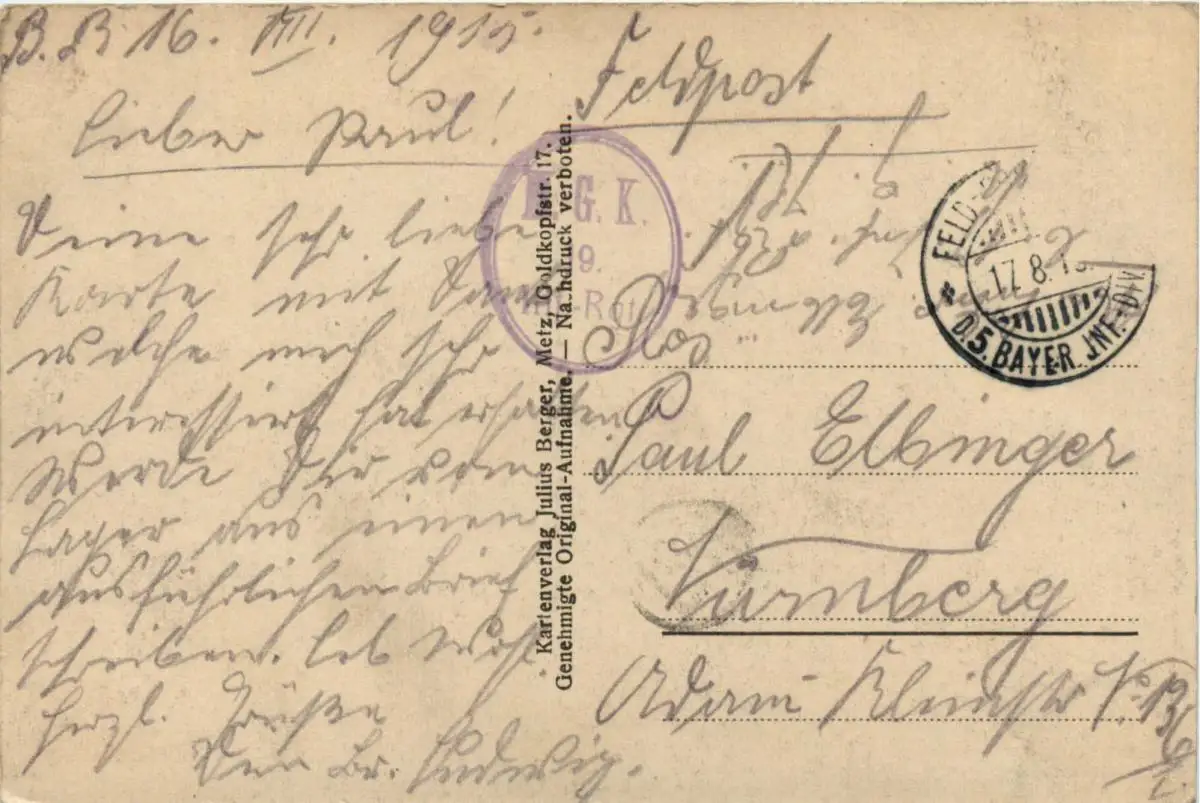 B. B 16. VIII. 1915.
Lieber Paul!
Deine sehr liebe
Karte mit Dank
welche mich sehr
interessirt hat erhalten
Werde Dir vom
Lager aus einen
ausführlichen Brief
schreiben. Leb Wohl
Herzl. Grüße
Dein Br. Ludwig.
Kartenverlag Julius Berger, Metz, Goldkopfstr. 17.
Genehmigte Original-Aufnahme. — Nachdruck verboten.
Feldpost
G. K.
9.
FELD
17. 8. 15
* D. 5. BAYER. INF.-DIV.
Paul Elbinger
Nürnberg
Adam Kleinstr